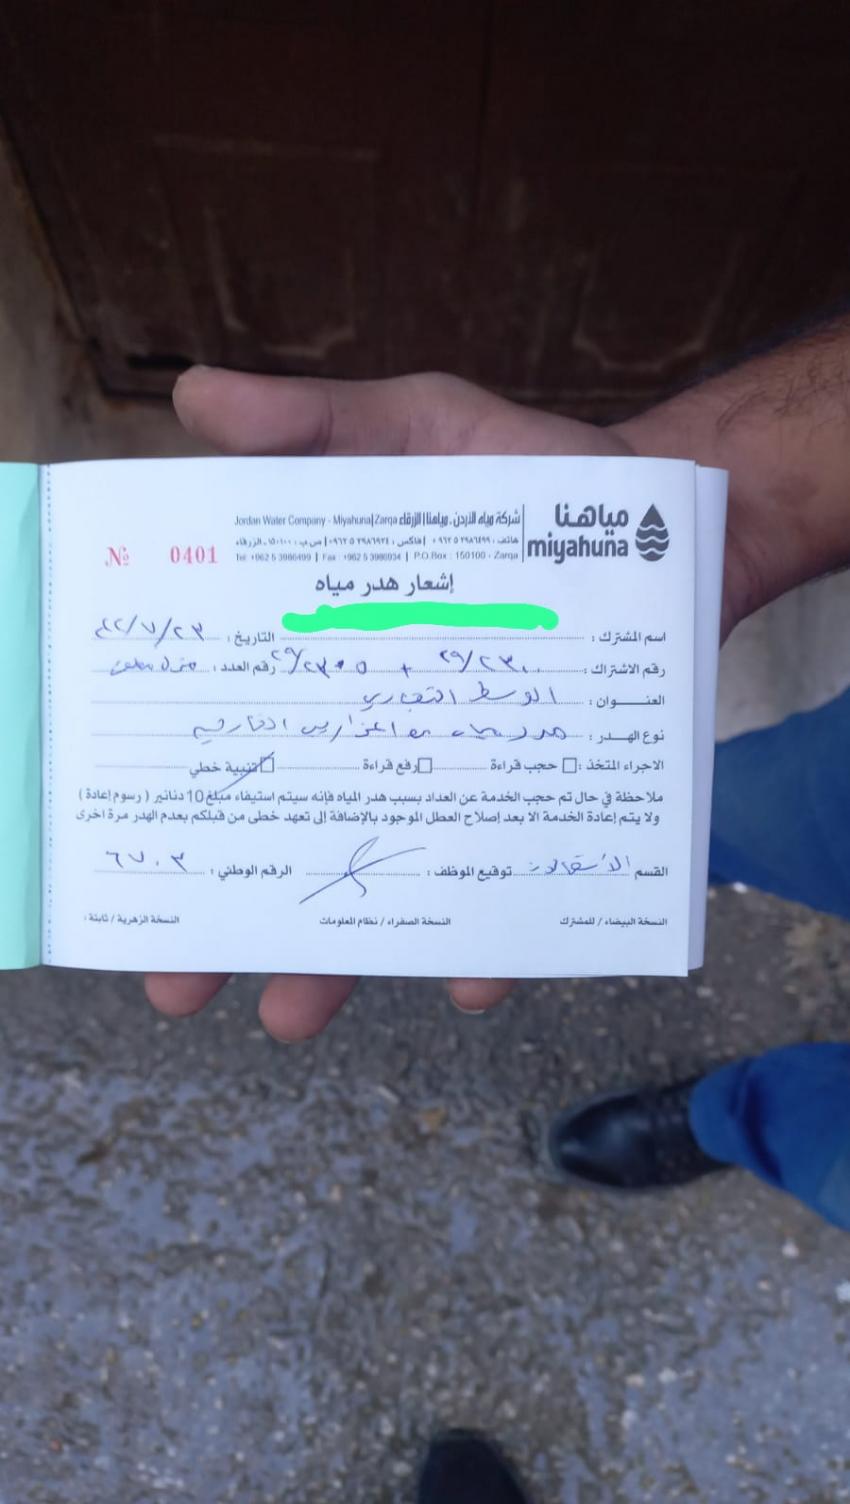 مياهنا
miyahuna
شركة مياه الأردن - مياهنا | الزرقاء Jordan Water Company - Miyahuna| Zarqa
هاتف : ٠٩٦٢ ٥ ٣٩٨٦٤٩٩ | فاكس : ٠٩٦٢ ٥ ٣٩٨٦٩٣٤ | ص.ب : ١٥٠١٠٠ - الزرقاء
Tel: +962 5 3986499 | Fax : +962 5 3986934 | P.O.Box : 150100 - Zarqa
№ 0401
إشعار هدر مياه
اسم المشترك : التاريخ : ٢٣/٧/
رقم الاشتراك : ٢٩/٢٣٠٠ + ٢٩/٢٣٠٥ رقم العدد :
العنـوان : الوسط التجاري
نوع الهدر : هدر مياه
الاجراء المتخذ : حجب قراءة رفع قراءة تنبية خطي
ملاحظة في حال تم حجب الخدمة عن العداد بسبب هدر المياه فإنه سيتم استيفاء مبلغ 10 دنانير ( رسوم إعادة )
ولا يتم إعادة الخدمة الا بعد إصلاح العطل الموجود بالإضافة إلى تعهد خطى من قبلكم بعدم الهدر مرة اخرى
القسم توقيع الموظف : الرقم الوطني : ٦٧٠٣
النسخة البيضاء / للمشترك النسخة الصفراء / نظام المعلومات النسخة الزهرية / ثابتة :